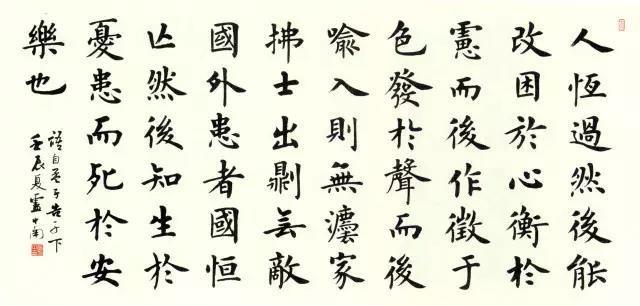 人恆過然後能
改困於心衡於
慮而後作徵于
色發於聲而後
喻入則無灋家
拂士出𠟭无敵
國外患者國恒
亡然後知生於
憂患而死於安
樂也
語自孟子告子下
壬辰夏盧中南